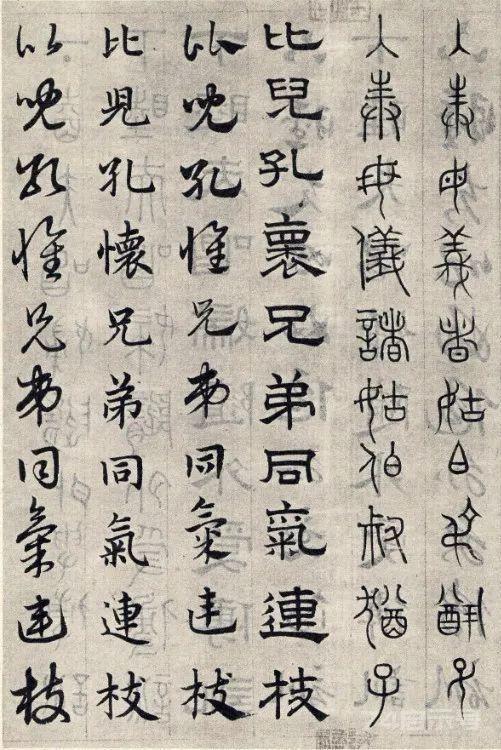 入奉母儀諸姑伯叔猶子
入奉母儀諸姑伯叔猶子
比兒孔懷兄弟同氣連枝
比兒孔懷兄弟同氣連枝
比兒孔懷兄弟同氣連枝
比兒孔懷兄弟同氣連枝